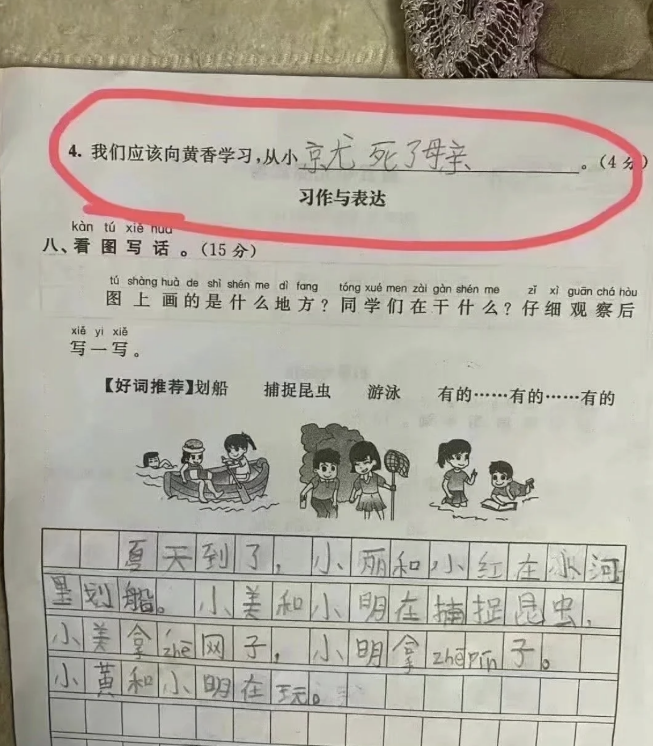 4. 我们应该向黄香学习,从小京尤死了母亲。(4分)
习作与表达
kàn tú xiě huà
八、看图写话。(15分)
tú shàng huà de shì shén me dì fang tóng xué men zài gàn shén me zǐ xì guān chá hòu
图上画的是什么地方?同学们在干什么?仔细观察后
xiě yi xiě
写一写。
【好词推荐】划船 捕捉昆虫 游泳 有的……有的……有的
夏天到了,小丽和小红在小河
里划船。小美和小明在捕捉昆虫,
小美拿zhē网子,小明拿zhēpín子。
小黄和小明在玩。